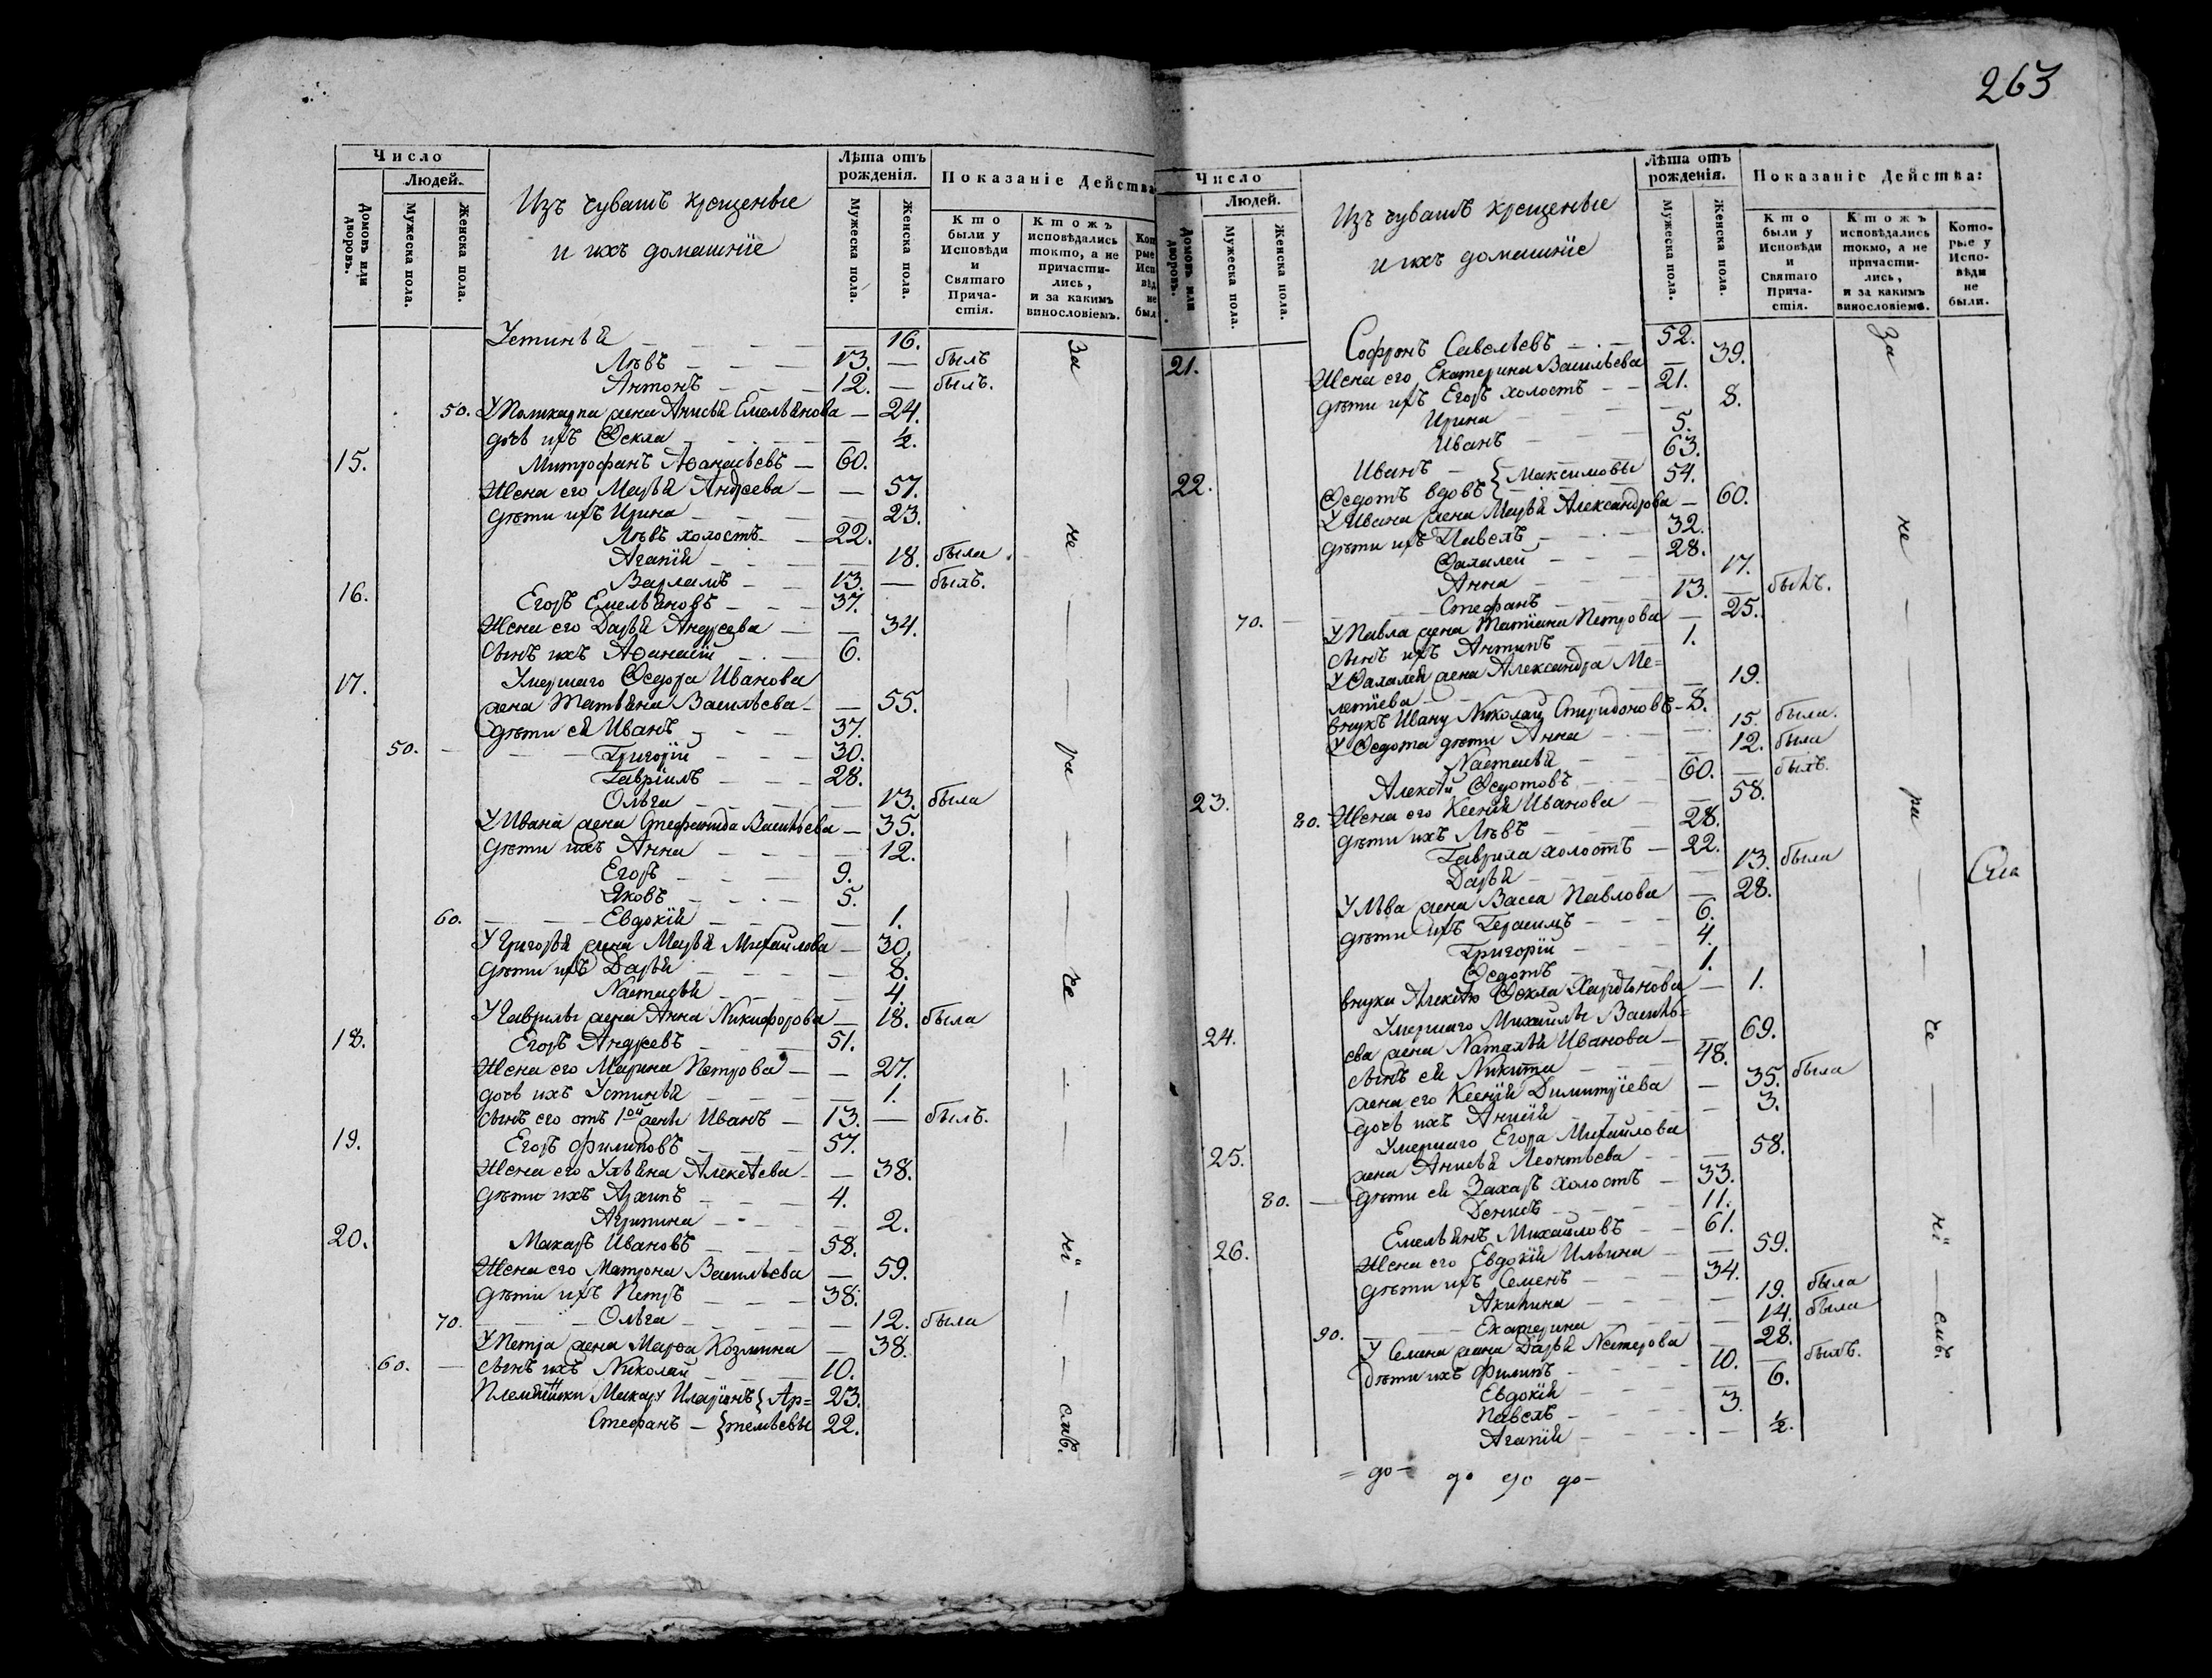 Число
Людей.
Домовъ или дворовъ.
Мужеска пола.
Женска пола.
Изъ чувашъ крещеные
и ихъ домашнїе
Лѣта отъ рожденія.
Мужеска пола.
Женска пола.
Показаніе Действа
Кто были у Исповѣди и Святаго Прича-стія.
Ктожъ исповѣдались токмо, а не причасти-лись, и за какимъ винословіемъ.
Устинья — 16.
Львъ — 13. — былъ
Антонъ — 12. — былъ.
50. У Поликарпа жена Анисья Емельянова — 24.
дочь ихъ Ѳекла — ½.
15. Митрофанъ Аѳанасьевъ — 60.
Жена его Марья Андреева — 57.
дѣти ихъ Ирина — 23.
Львъ холостъ — 22.
Агапїя — 18. была.
Варламъ — 13. — былъ.
16. Егоръ Емельяновъ — 37.
Жена его Дарья Андреева — 34.
сынъ ихъ Аѳанасїй — 6.
17. Умершаго Ѳедора Иванова
жена Татьяна Васильева — 55.
дѣти ея Иванъ — 37.
50. — Григорїй — 30.
Гаврїилъ — 28.
Ольга — 13. была
У Ивана жена Стефанида Васильева — 35.
дѣти ихъ Анна — 12.
Егоръ — 9.
Яковъ — 5.
60. — Евдокїя — 1.
У Григорья жена Марья Михайлова — 30.
дѣти ихъ Дарья — 8.
Настасья — 4.
У Гаврилы жена Анна Никифорова — 18. была
18. Егоръ Андреевъ — 51.
Жена его Марина Петрова — 27.
дочь ихъ Устинья — 1.
сынъ его отъ 1ой жены Иванъ — 13. — былъ.
19. Егоръ Филиповъ — 57.
Жена его Ульяна Алексѣева — 38.
дѣти ихъ Архипъ — 4.
Агрипина — 2.
20. Макаръ Ивановъ — 58.
Жена его Матрона Васильева — 59.
дѣти ихъ Петръ — 38.
70. — Ольга — 12. была
У Петра жена Марѳа Козмина — 38.
60. — сынъ ихъ Николай — 10.
Племянники Макару Иларїонъ { Ар= 23.
Стефанъ — { темьевы 22.
За — не — ра — че — нї — емъ.
263
Число
Людей.
Домовъ или дворовъ.
Мужеска пола.
Женска пола.
Изъ чувашъ крещеные
и ихъ домашнїе
Лѣта отъ рожденія.
Мужеска пола.
Женска пола.
Показаніе Действа:
Кто были у Исповѣди и Святаго Прича-стія.
Ктожъ исповѣдались токмо, а не причасти-лись, и за какимъ винословіемъ.
Кото-рые у Испо-вѣди не были.
21. Софронъ Савельевъ — 52.
Жена его Екатерина Васильева — 39.
дѣти ихъ Егоръ холостъ — 21.
Ирина — 8.
Иванъ — 5.
22. Иванъ — { Максимовы 63.
Ѳедотъ вдовъ { 54.
У Ивана жена Марья Александрова — 60.
дѣти ихъ Павелъ — 32.
Ѳалалей — 28.
Анна — 17.
70. — Стефанъ — 13. — былъ.
У Павла жена Татїана Петрова — 25.
сынъ ихъ Антипъ — 1.
У Ѳалалея жена Александра Ме=
летїева — 19.
внукъ Ивану Николай Спиридоновъ — 8.
У Ѳедота дѣти Анна — 15. была.
Настасья — 12. была
23. Алексѣй Ѳедотовъ — 60. — былъ.
80. Жена его Ксенїя Иванова — 58.
дѣти ихъ Львъ — 28.
Гаврила холостъ — 22.
Дарья — 13. была
У Льва жена Васса Павлова — 28.
дѣти ихъ Герасимъ — 6.
Григорїй — 4.
Ѳедотъ — 1.
внука Алексѣю Ѳекла Харитонова — 1.
24. Умершаго Михайлы Василь=
ева жена Наталья Иванова — 69.
сынъ ея Никита — 48.
жена его Ксенїя Димитрїева — 35. была
дочь ихъ Анисїя — 3.
25. Умершаго Егора Михайлова
жена Анисья Леонтьева — 58.
80. — дѣти ея Захаръ холостъ — 33.
Денисъ — 11.
26. Емельянъ Михайловъ — 61.
Жена его Евдокїя Ильина — 59.
дѣти ихъ Семенъ — 34.
Акилина — 19. была
90. — Екатерина — 14. была
У Семена жена Дарья Нестерова — 28.
дѣти ихъ Филипъ — 10. — былъ.
Евдокїя — 6.
Павелъ — 3.
Агапїя — ½.
За — не — ра — че — нї — емъ.
= до — до до до —